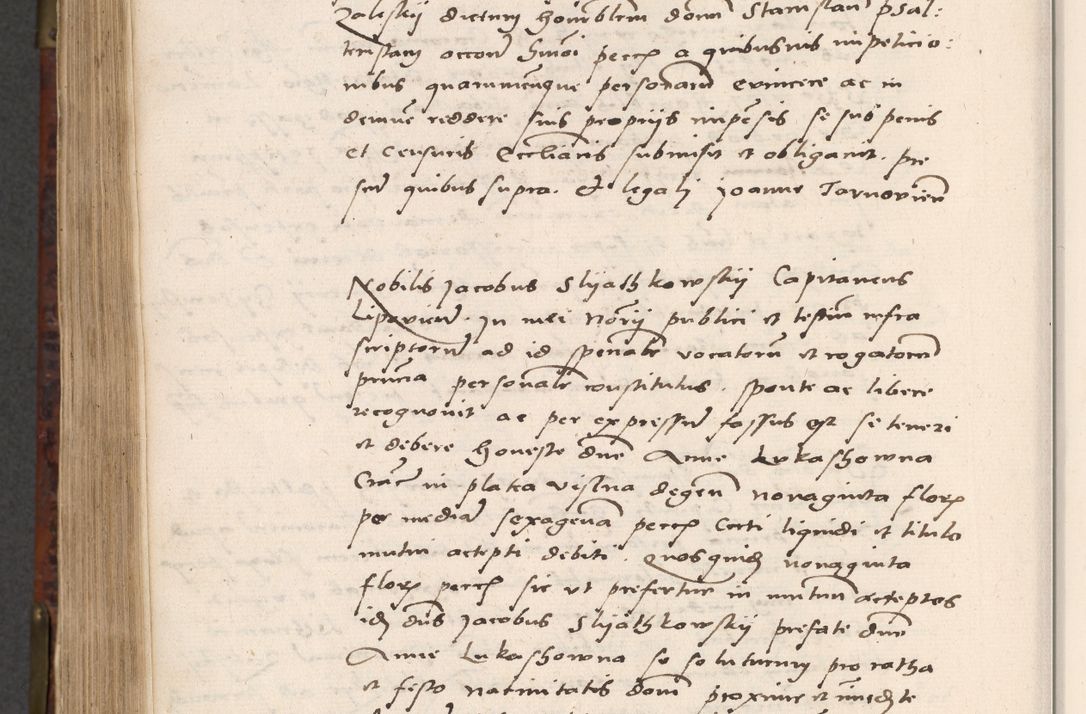 Zaleskij dictum honorablem domin Stanislaum psal:
teristam occone hmoi pecce a quibusuis impeticio:
nibus quarumcunque personarum evincere ac in
demne reddere suis proprijs impensis se sub penis
et censuris Ecclīaris submisit et obligauit. pre
sen quibus supra. et legali Joanne Tarnovien
Nobilis Jacobus Slyathkowskij Capitaneus
Lipovien. In mei Norij publici et testium infra
scriptorum ad id spēnalr vocatorum et rogatorum
prntia personalr constitutus. sponte ac libere
recognovit ac per expressum fassus est se teneri
et debere honeste dne Anne Lukashowna
Crac in platea vislna degen nonaginta flor
per media sexagena pecce certi liquidi et titulo
mutui accepti debiti. Quos quidem nonaginta
flor pecce sic ut prefertur in mutuum acceptos
idem dns Jacobus Slyathkowskij prefate dne
Anne Lukashowna se soluturum pro ratha
et festo natiuitatis domi proxime et immediate